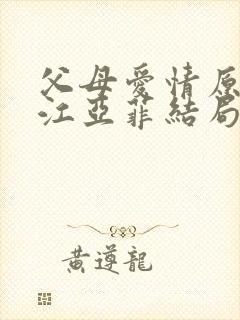 父母愛情原
江亞菲結局
黃遵龍